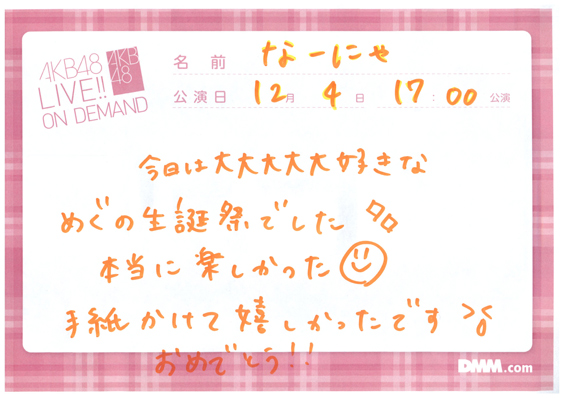 AKB48
LIVE!!
ON DEMAND
AKB
48
名 前 なーにゃ
公演日 12月 4日 17:00 公演
今日は大大大大大好きな
めぐの生誕祭でした
本当に楽しかった
手紙かけて嬉しかったです
おめでとう!!
DMM.com